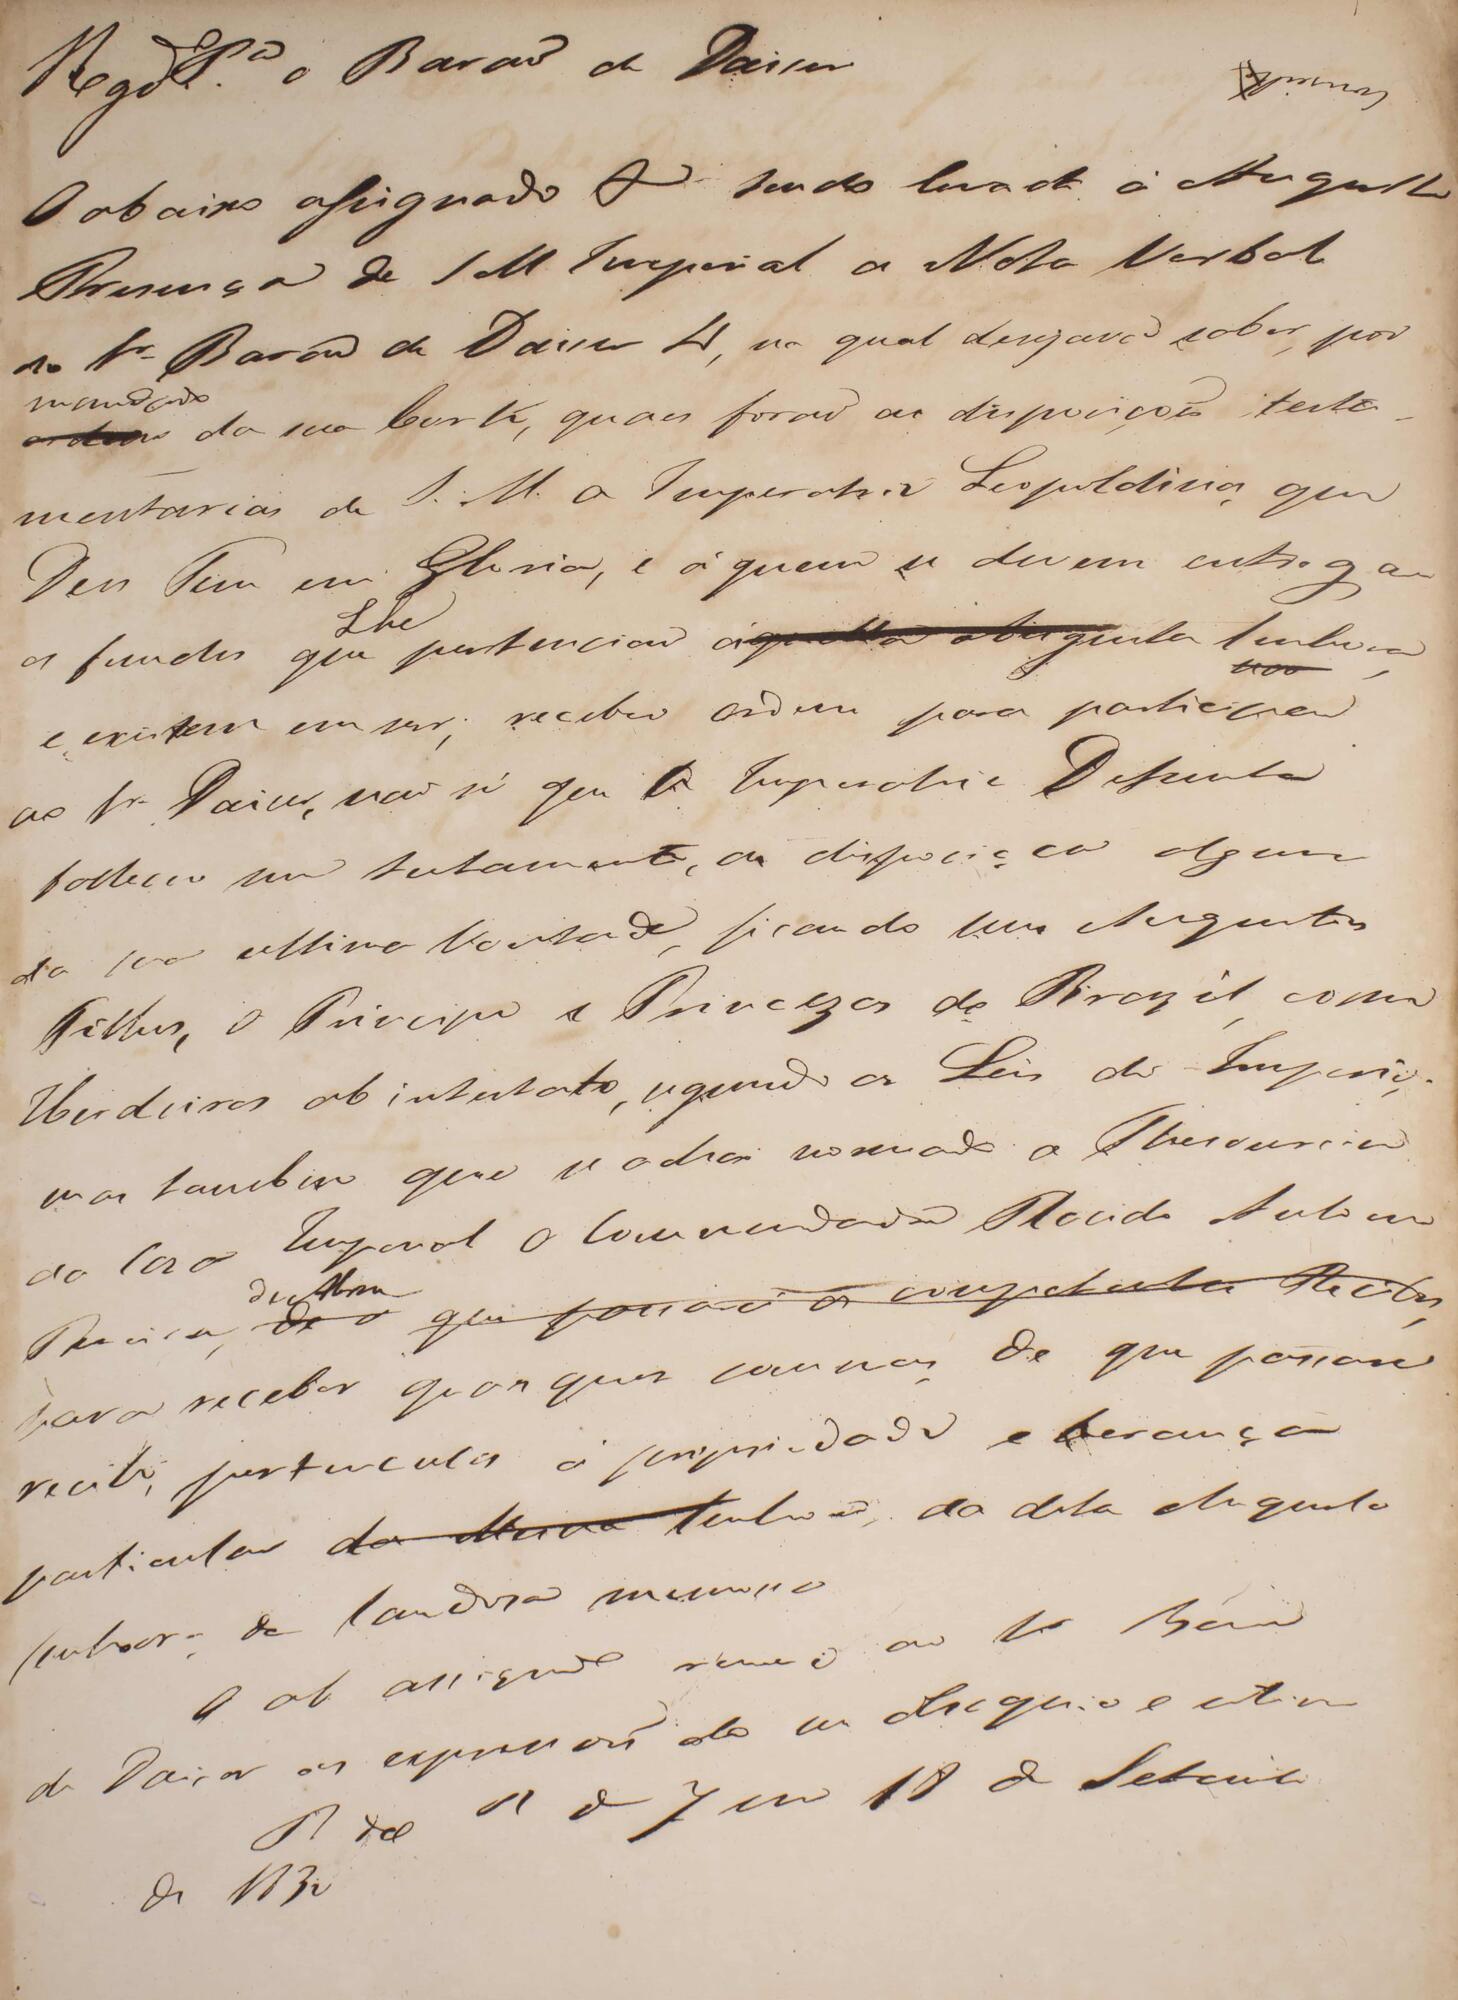 o Barão de Daiser
O abaixo assignado & tendo levado á Augusta
Presença de S M Imperial a Nota Verbal
do Sr Barão de Daiser &, na qual desejava saber, por
mandado
ordem da sua Corte, quaes forão as disposições testa-
mentarias de S. M. a Imperatriz Leopoldina, que
Deos Tem em Gloria, e á quem se devem entregar
Lhe
os fundos que pertencião áquella Augusta Senhora,
e existem em ser; recebeo ordem para participar
ao Sr Daiser, não só que a Imperatriz Defunta
falleceo sem testamento, ou disposição algum
da sua ultima Vontade, ficando seus Augustos
Filhos, o Principe e Princezas do Brazil, como
Herdeiros abintestato, segundo as Leis do Imperio;
mas tambem que se acha nomeado o Thesoureiro
da Casa Imperial o Commendador Placido Antonio
Pereira, que passará os competentes Recibos,
para receber quaesquer sommas, de que passará
recibo, pertencentes á propriedade e herança
particular da Mesma Senhora, da dita Augusta
Senhora, de saudosa memoria
O ab assignado renova ao Sr Barão
de Daiser as expressões do seu obsequio e estima
de 7 em 18 de Setembro
de 1830